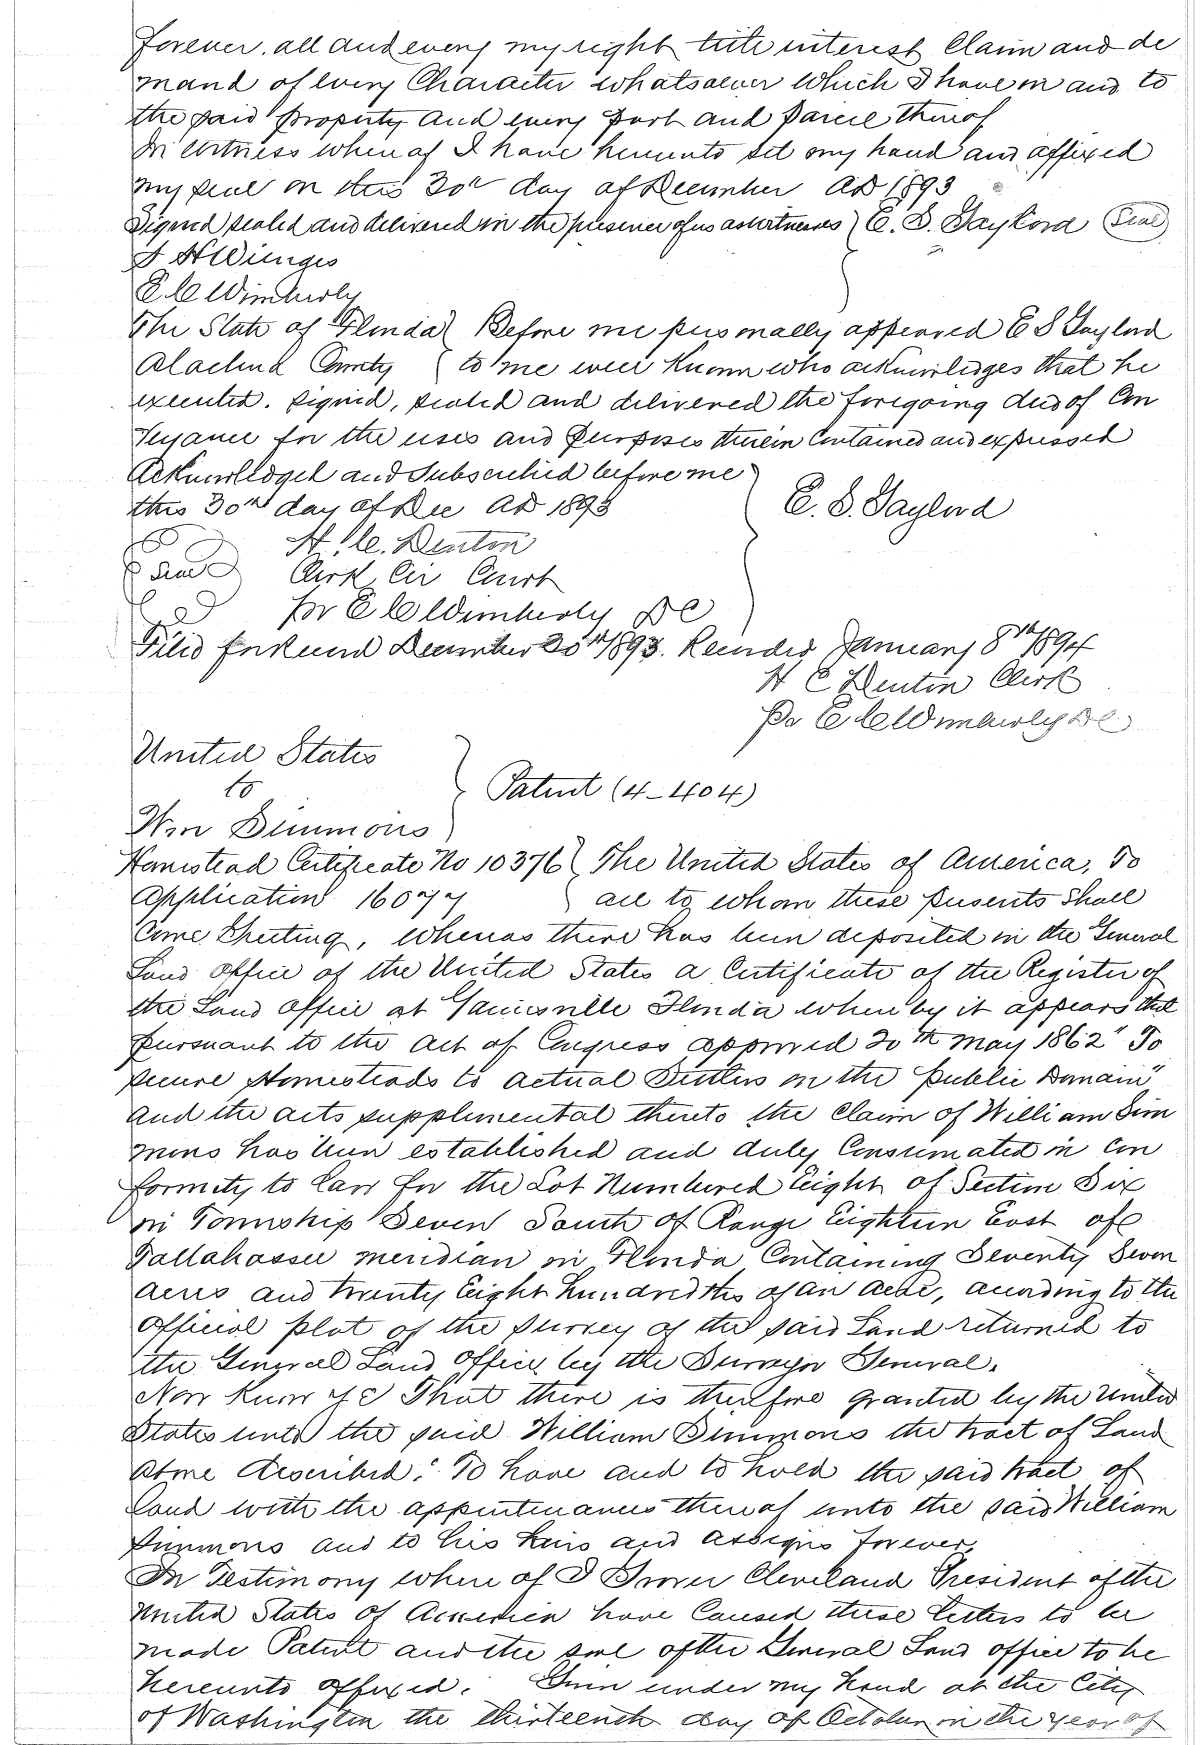 forever. all and every my right title interest Claim and de
mand of every Character whatsoever which I have in and to
the said property and every part and parcel thereof
In witness whereof I have hereunto set my hand and affixed
my seal on this 30th day of December AD 1893
Signed sealed and delivered in the presence of us as witnesses } E. S. Gaylord (Seal)
J H Wienges
E. C Wimberly
The State of Florida } Before me personally appeared E S Gaylord
Alachua County } to me well known who acknowledges that he
executed. signed, sealed and delivered the foregoing deed of Con
veyance for the uses and purposes therein contained and expressed
Acknowledged and Subscribed before me
this 30th day of Dec AD 1893
E. S. Gaylord
H. C. Denton
Seal Clerk Cir Court
for E C Wimberly DC
Filed for Record December 30th 1893. Recorded January 8th 1894
H C Denton Clerk
Per E C Wimberly DC
United States
to } Patent (4-404)
Wm Simmons
Homestead Certificate No 10376 } The United States of America, To
Application 16077 } all to whom these presents shall
Come Greeting, whereas there has been deposited in the General
Land office of the United States a Certificate of the Register of
the Land office at Gainesville Florida whereby it appears that
pursuant to the Act of Congress approved 20th May 1862 "To
secure Homesteads to actual Settlers on the public Domain"
and the acts supplimental thereto the Claim of William Sim
mons has been established and duly Consumated in con
formity to law for the Lot Numbered Eight of Section Six
in Township Seven South of Range Eighteen East of
Tallahassee meridian in Florida Containing Seventy Seven
acres and twenty Eight hundredths of an acre, according to the
Official plat of the survey of the said Land returned to
the General Land Office by the Surveyor General.
Now Know Ye That there is therefore granted by the United
States unto the said William Simmons the tract of Land
above described: To have and to hold the said tract of
land with the appurtenances thereof unto the said William
Simmons and to his heirs and assigns forever.
In Testimony where of I Grover Cleveland President of the
United States of America have caused these letters to be
made Patent and the seal of the General Land office to be
hereunto affixed. Given under my hand at the City
of Washington the thirteenth day of October in the year of